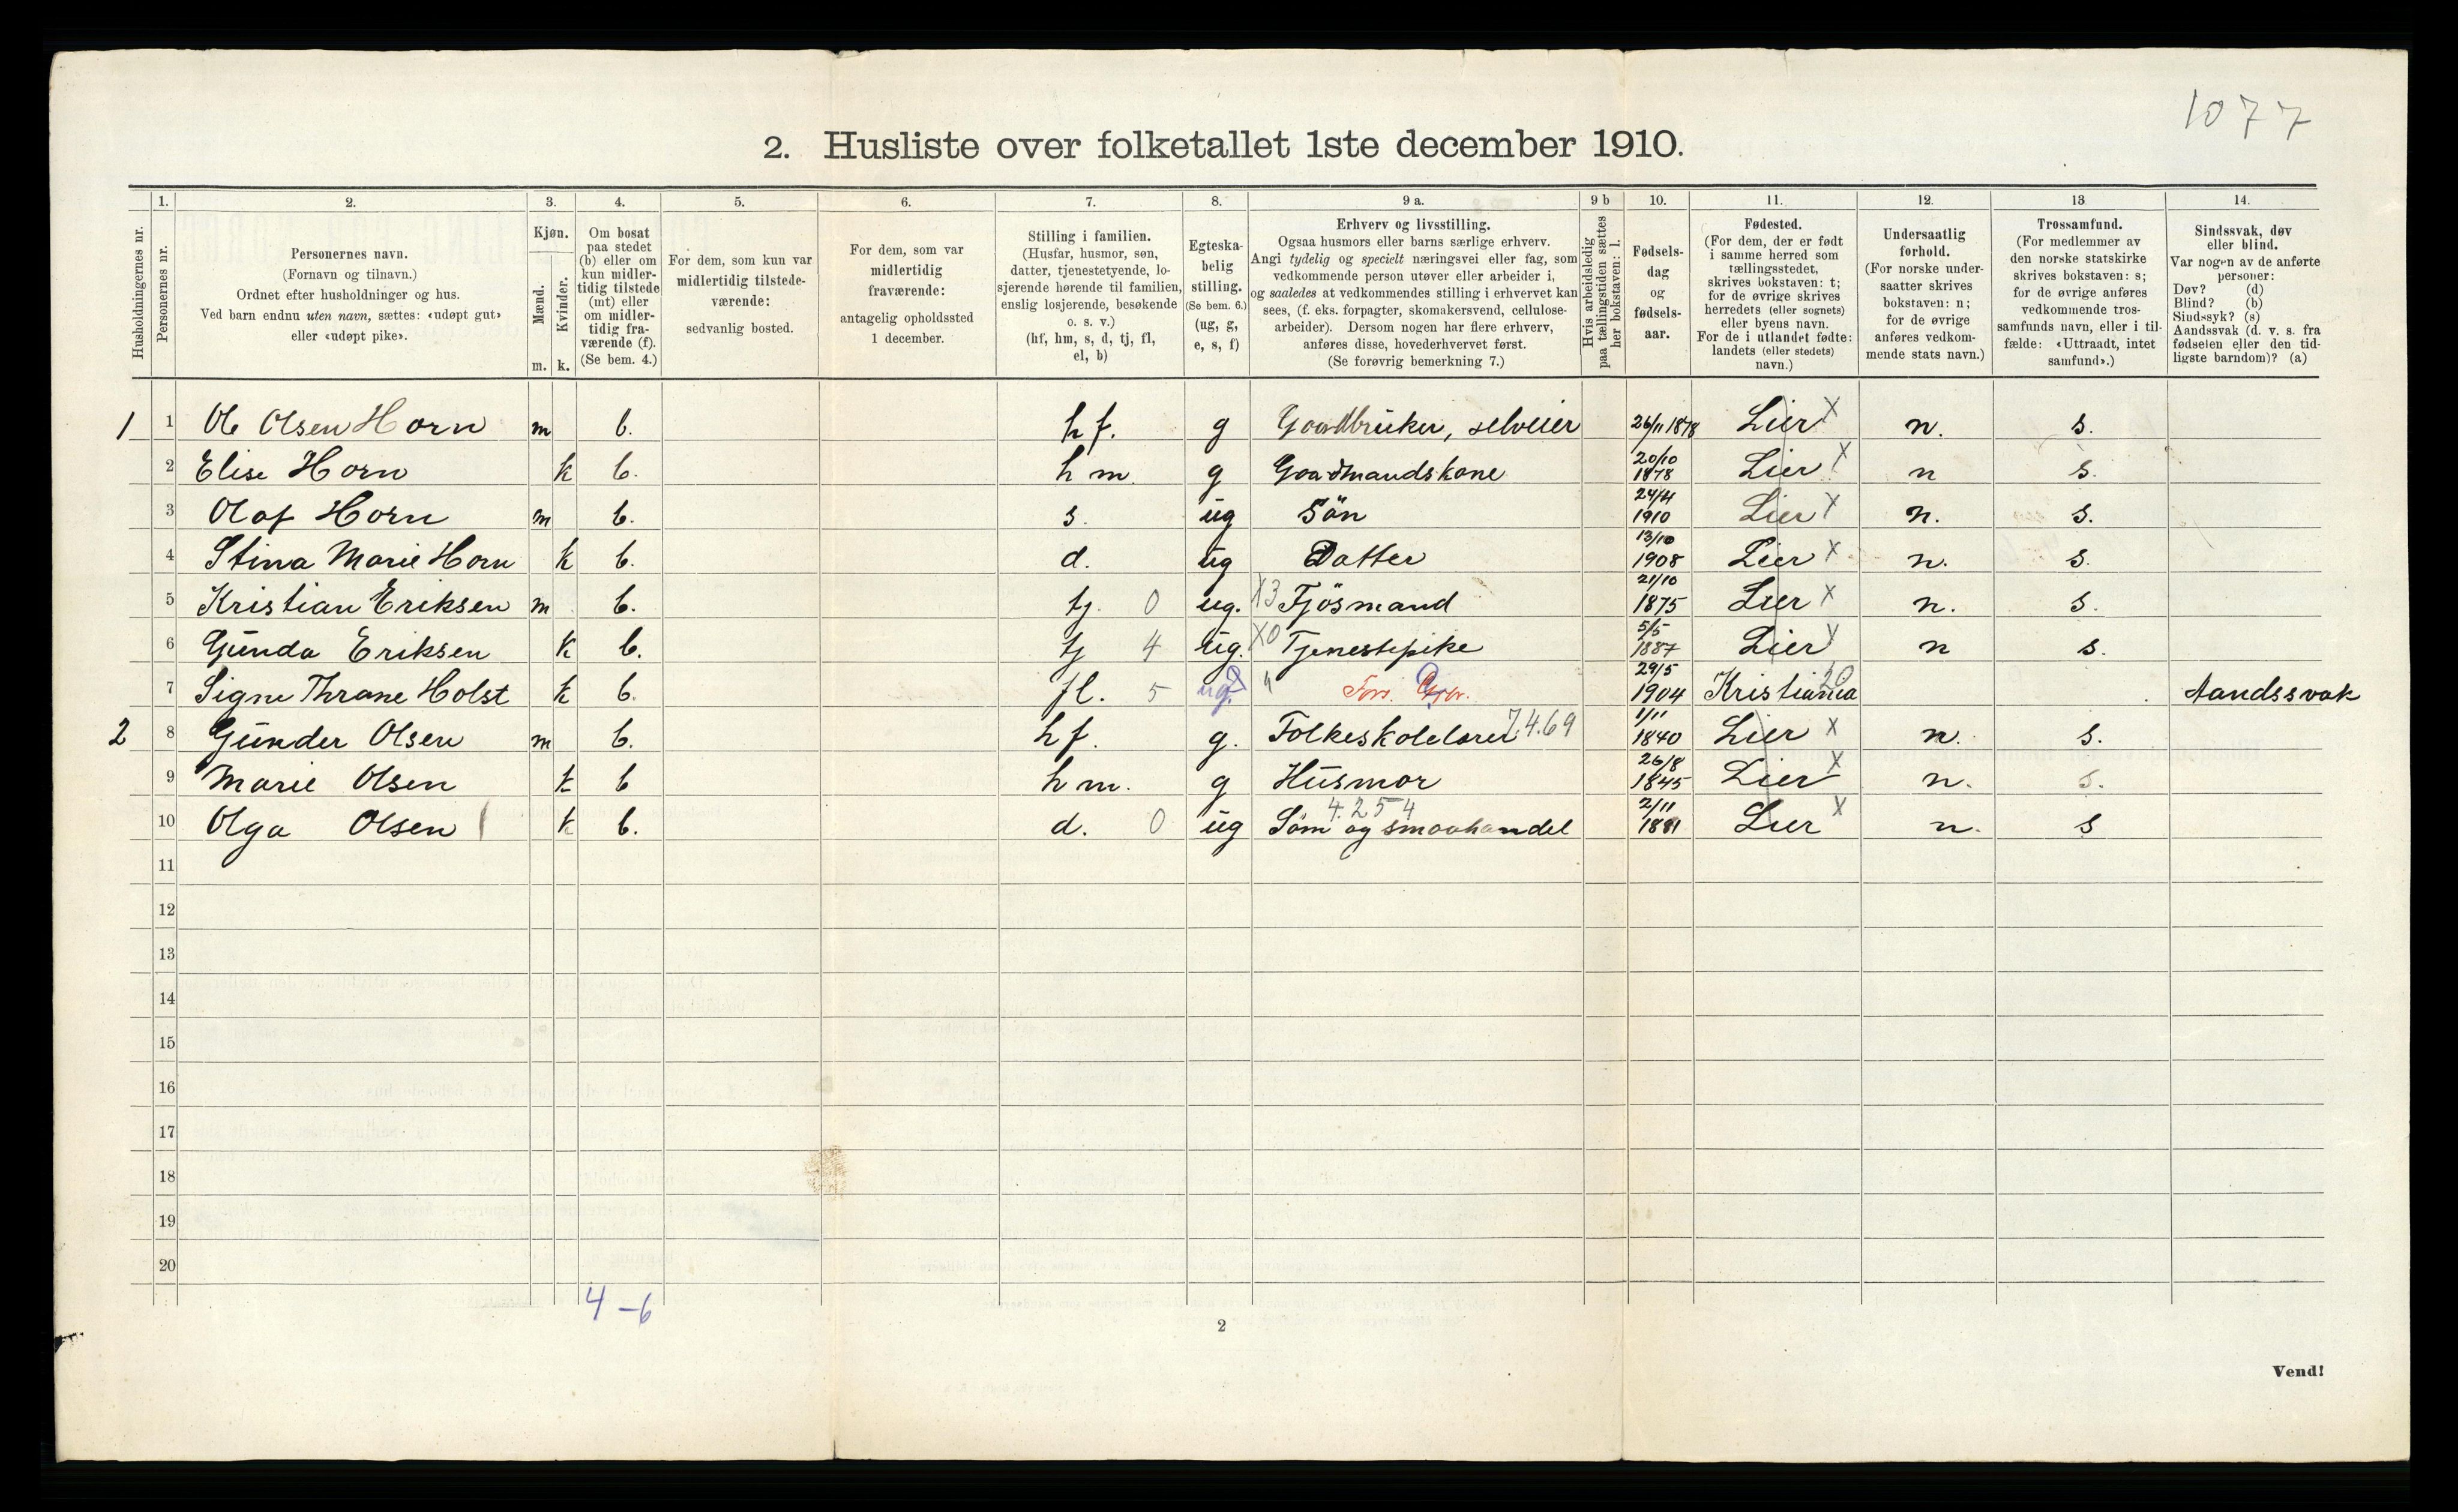 1077
2. Husliste over folketallet 1ste december 1910.
Husholdningernes nr.
1.
Personernes nr.
2.
Personernes navn.
(Fornavn og tilnavn.)
Ordnet efter husholdninger og hus.
Ved barn endnu uten navn, sættes: «udøpt gut»
eller «udøpt pike».
3.
Kjøn.
Mænd.
Kvinder.
m. k.
4.
Om bosat
paa stedet
(b) eller om
kun midler-
tidig tilstede
(mt) eller
om midler-
tidig fra-
værende (f).
(Se bem. 4.)
5.
For dem, som kun var
midlertidig tilstede-
værende:
sedvanlig bosted.
6.
For dem, som var
midlertidig
fraværende:
antagelig opholdssted
1 december.
7.
Stilling i familien.
(Husfar, husmor, søn,
datter, tjenestetyende, lo-
sjerende hørende til familien,
enslig losjerende, besøkende
o. s. v.)
(hf, hm, s, d, tj, fl,
el, b)
8.
Egteska-
belig
stilling.
(Se bem. 6.)
(ug, g,
e, s, f)
9 a.
Erhverv og livsstilling.
Ogsaa husmors eller barns særlige erhverv.
Angi tydelig og specielt næringsvei eller fag, som
vedkommende person utøver eller arbeider i,
og saaledes at vedkommendes stilling i erhvervet kan
sees, (f. eks. forpagter, skomakersvend, cellulose-
arbeider). Dersom nogen har flere erhverv,
anføres disse, hovederhvervet først.
(Se forøvrig bemerkning 7.)
9 b
Hvis arbeidsledig
paa tællingstiden sættes
her bokstaven: l.
10.
Fødsels-
dag
og
fødsels-
aar.
11.
Fødested.
(For dem, der er født
i samme herred som
tællingsstedet,
skrives bokstaven: t;
for de øvrige skrives
herredets (eller sognets)
eller byens navn.
For de i utlandet fødte:
landets (eller stedets)
navn.)
12.
Undersaatlig
forhold.
(For norske under-
saatter skrives
bokstaven: n;
for de øvrige
anføres vedkom-
mende stats navn.)
13
Trossamfund.
(For medlemmer av
den norske statskirke
skrives bokstaven: s;
for de øvrige anføres
vedkommende tros-
samfunds navn, eller i til-
fælde: «Uttraadt, intet
samfund».)
14.
Sindssvak, døv
eller blind.
Var nogen av de anførte
personer:
Døv? (d)
Blind? (b)
Sindssyk? (s)
Aandssvak (d. v. s. fra
fødselen eller den tid-
ligste barndom)? (a)
1 1 Ole Olsen Horn m b. hf. g Gaardbruker, selveier 26/11 1878 Lier X n. s.
2 Elise Horn k b. hm. g Gaardmandskone 20/10 1878 Lier X n s.
3 Olaf Horn m b. s. ug Sön 1910 Lier X n. s.
4 Stina Marie Horn k b. d. ug Datter 13/10 1908 Lier X n. s.
5 Kristian Eriksen m b. tj. 0 ug. X3 Fjösmand 21/10 1875 Lier X n. s.
6 Gunda Eriksen k b. tj 4 ug. X0 Tjenestepike 5/5 1887 Lier X n s.
7 Signe Thrane Holst k b. fl. 5 ug. 29/5 1904 Kristiania Aandssvak
2 8 Gunder Olsen m b. hf. g. Folkeskolelærer 7.4.69 1/11 1840 Lier X n. s.
9 Marie Olsen k b hm. g Husmor 26/8 1845 Lier X n. s.
10 Olga Olsen k b. d. 0 ug Söm og smaahandel 4.254 2/11 1881 Lier X n. s
11
12
13
14
15
16
17
18
19
20
4-6
2
Vend!